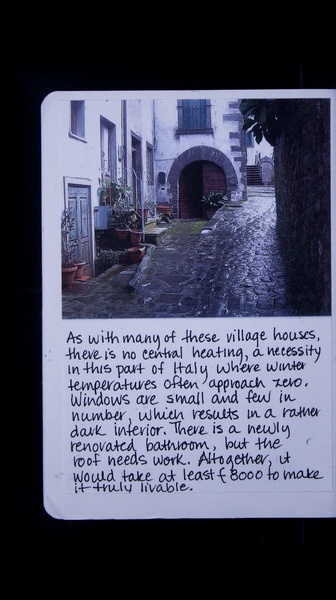 As with many of these village houses,
there is no central heating, a necessity
in this part of Italy where winter
temperatures often approach zero.
Windows are small and few in
number, which results in a rather
dark interior. There is a newly
renovated bathroom, but the
roof needs work. Altogether, it
would take at least £8000 to make
it truly livable.